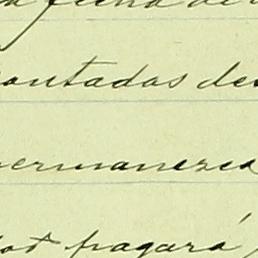 a fecha de
contadas des
permanezca
tod pagará